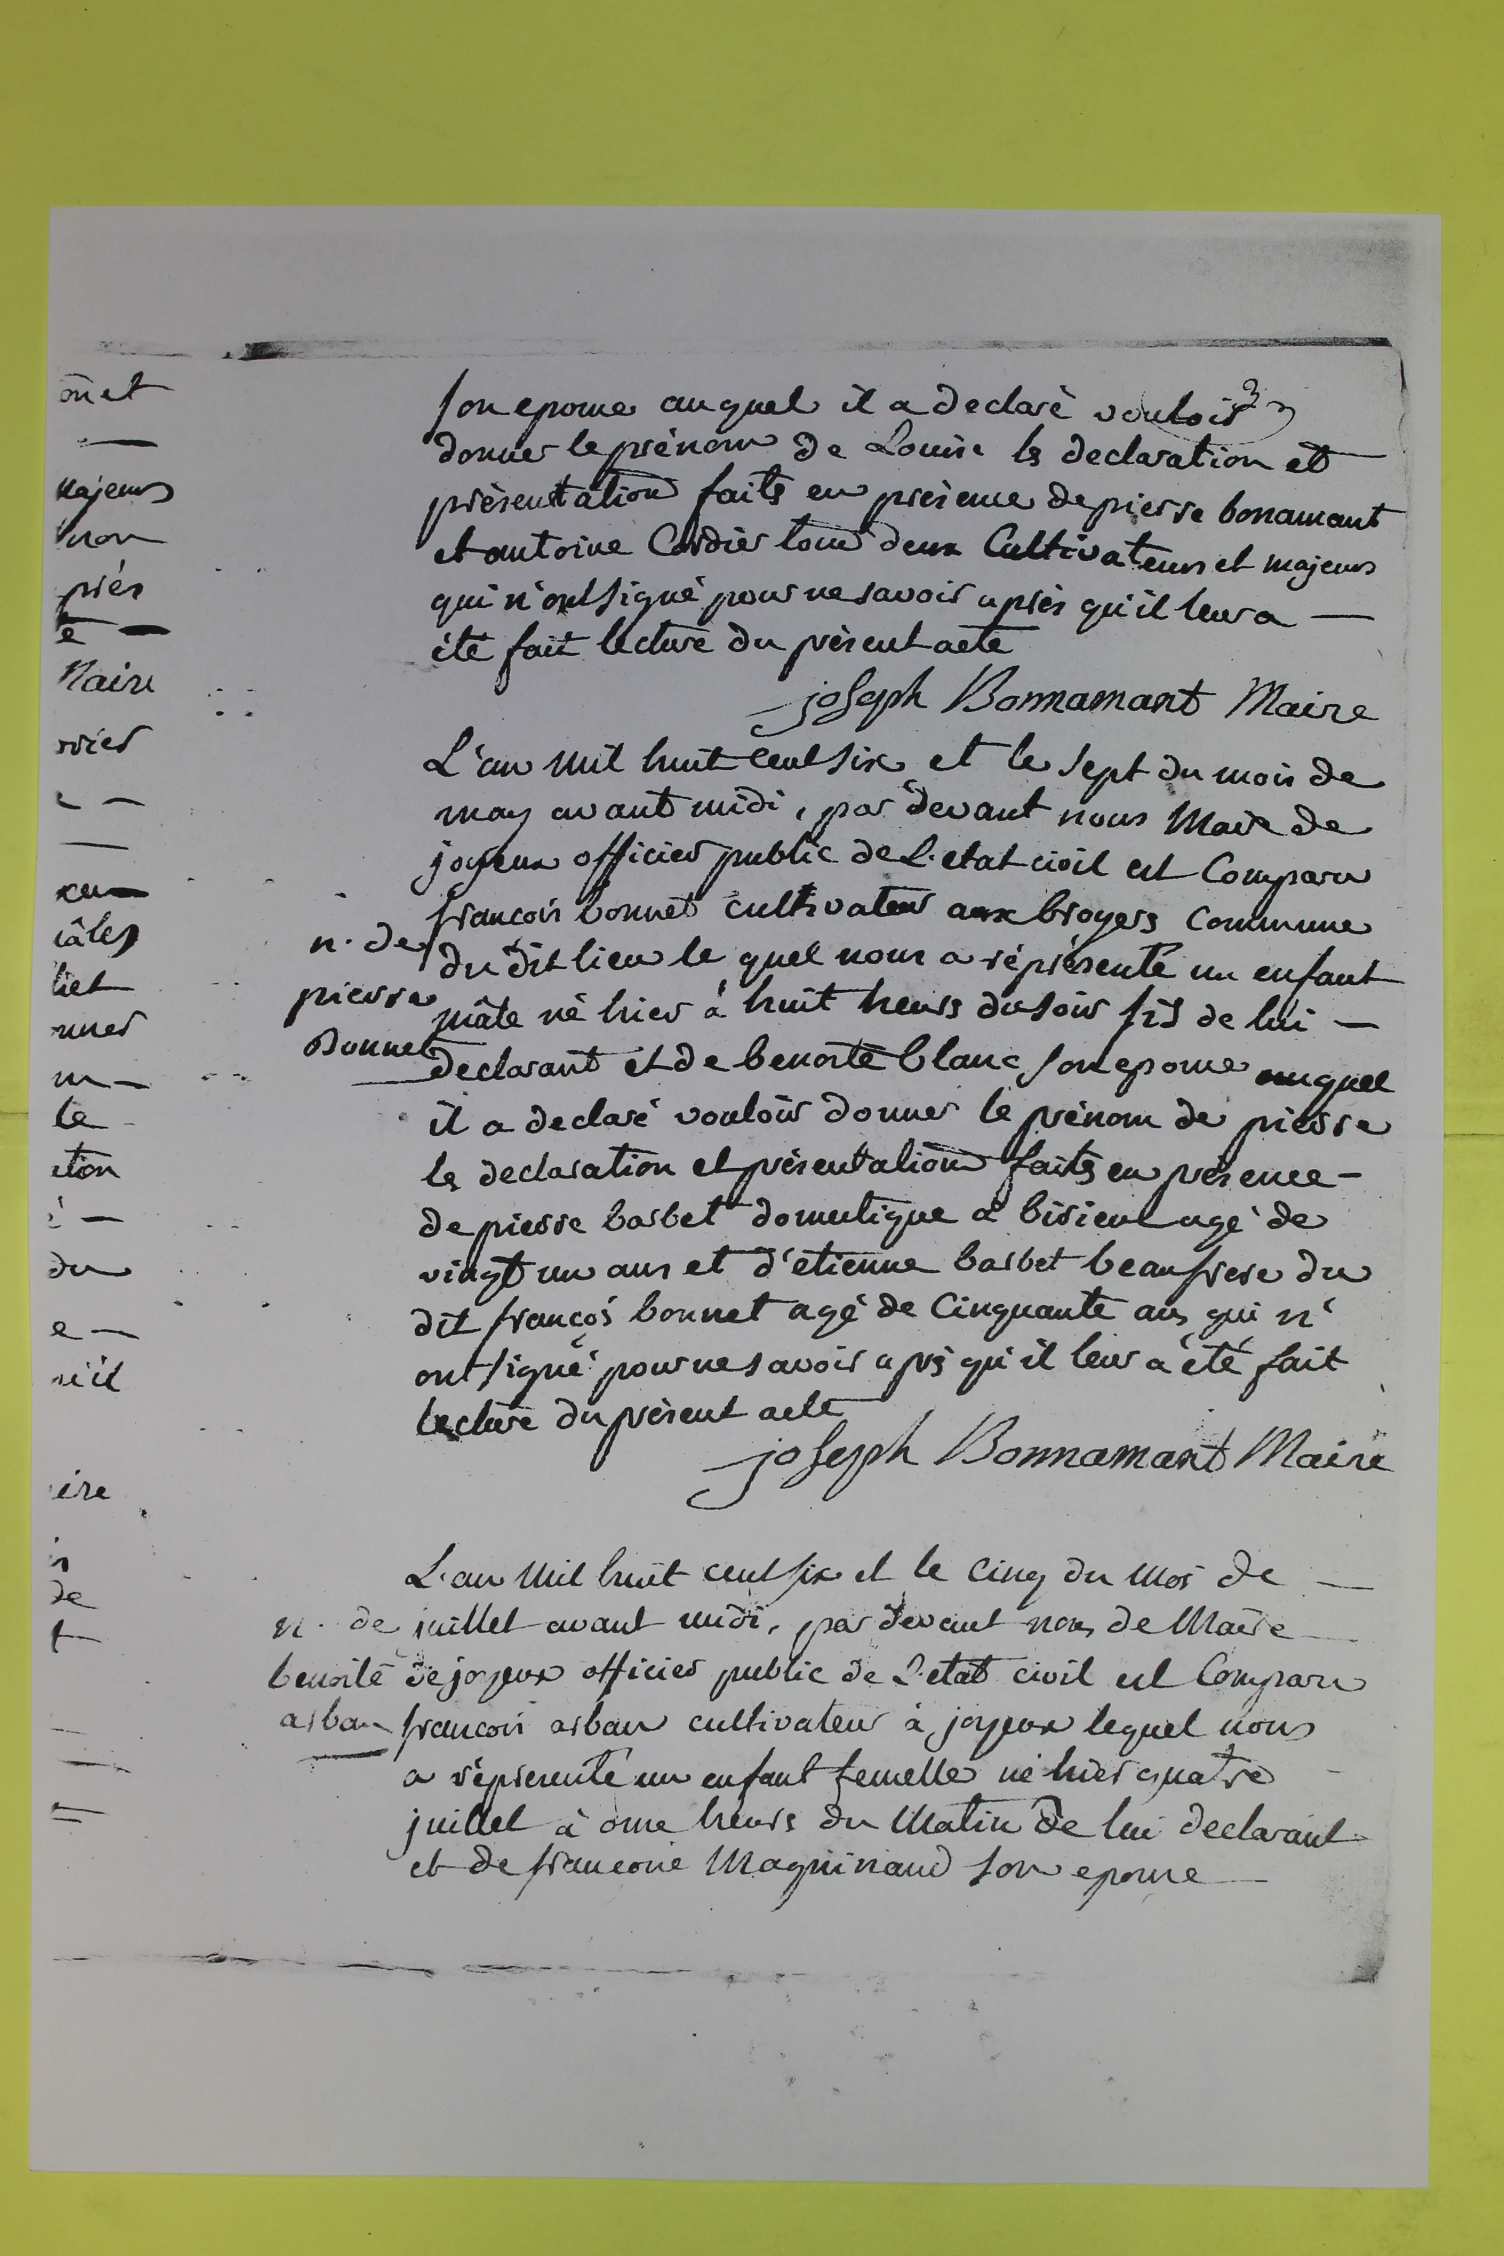 son epouse auquel il a declaré vouloir
donner le prénom de Louise les declaration et
présentation faits en présence de pierre bonamant
et antoine Cordier tous deux Cultivateurs et majeurs
qui n'ont signé pour ne savoir après qu'il leur a
été fait lecture du présent acte
joseph Bonnamant Maire
L'an mil huit cent six et le sept du mois de
may avant midi, par devant nous Maire de
joyeux officier public de L'etat civil est Comparu
francois bonnet cultivateur aux broyers commune
du dit lieu le quel nous a réprésenté un enfant
mâle né hier à huit heurs du soir fils de lui
declarant et de benoite blanc son epouse auquel
il a declaré vouloir donner le prénom de pierre
les declaration et présentation faits en présence
de pierre barbet domestique a birieux agé de
vingt un ans et d'etienne barbet beaufrere du
dit françois bonnet agé de Cinquante ans qui n'
ont signé pour ne savoir après qu'il leur a été fait
lecture du présent acte
joseph Bonnamant Maire
n. de
pierre
Bonnet
L'an Mil huit cent six et le cinq du mois de
juillet avant midi, par devant nous de Maire
de joyeux officier public de L'etat civil est Comparu
francois arban cultivateur à joyeux lequel nous
a réprésenté un enfant femelle né hier quatre
juillet à onze heurs du Matin de lui declarant
et de francoise Magninand son epouse
n. de
benoite
arban
onet
majeurs
non
près
te
Maire
le
tion
du
e
u'il
ire
de